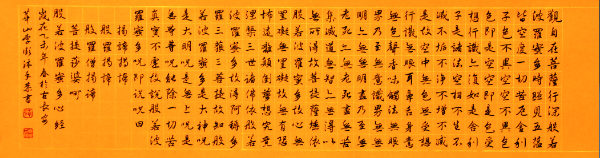 觀自在菩薩行深般若
波羅蜜多時照見五蘊
皆空度一切苦厄舍利
子色不異空空不異色
色即是空空即是色受
想行識亦復如是舍利
子是諸法空相不生不
滅不垢不淨不增不減
是故空中無色無受想
行識無眼耳鼻舌身意
無色聲香味觸法無眼
界乃至無意識界無無
明亦無無明盡乃至無
老死亦無老死盡無苦
集滅道無智亦無得以
無所得故菩提薩埵依
般若波羅蜜多故心無
罣礙無罣礙故無有恐
怖遠離顛倒夢想究竟
涅槃三世諸佛依般若
波羅蜜多故得阿耨多
羅三藐三菩提故知般
若波羅蜜多是大神咒
是大明咒是無上咒是
無等等咒能除一切苦
真實不虛故說般若波
羅蜜多咒即說咒曰
揭諦揭諦
般羅揭諦
般羅僧揭諦
菩提薩婆訶
般若波羅蜜多心經